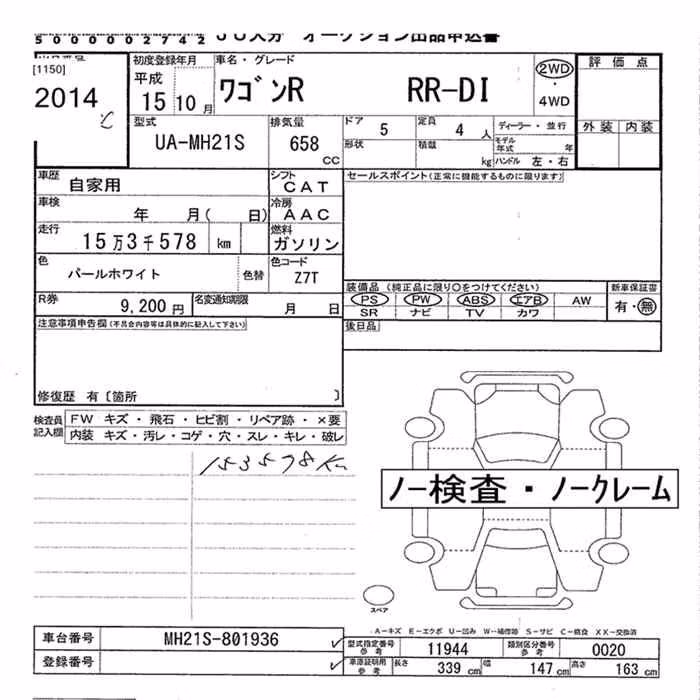 5000002742
JU大分 オークション出品申込書
[1150]
2014
初度登録年月
平成
15 10 月
車名・グレード
ワゴンR RR-DI
2WD
・
4WD
評価点
外装 内装
型式
UA-MH21S
排気量
658
CC
ドア 5
定員 4 人
ディーラー・並行
形状
積載 kg
モデル年式 年
ハンドル 左・右
車歴 自家用
シフト
CAT
セールスポイント(正常に機能するものに限ります)
車検 年 月( 日)
冷房
AAC
走行 15万3千578 km
燃料
ガソリン
色
パールホワイト 色替
色コード
Z7T
装備品(純正品に限り○をつけてください)
新車保証書
PS PW ABS エアB AW
有・無
SR ナビ TV カワ
R券 9,200 円
名変通知期限 月 日
後日品
注意事項申告欄(不具合内容等は具体的に記入して下さい)
修復歴 有〔箇所 〕
検査員記入欄
FW キズ・飛石・ヒビ割・リペア跡・×要
内装 キズ・汚レ・コゲ・穴・スレ・キレ・破レ
153578Km
ノー検査・ノークレーム
スペア
A-キズ E-エクボ U-凹み W-補修跡 S-サビ C-腐食 XX-交換済
車台番号 MH21S-801936
型式指定番号 参考 11944
類別区分番号 参考 0020
登録番号
車庫証明用 参考 長さ 339 cm 幅 147 cm 高さ 163 cm